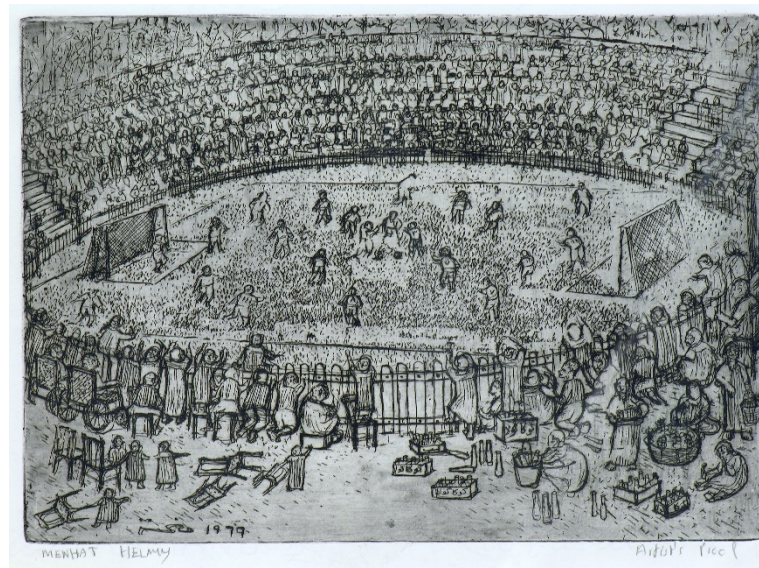 1977
MENHAT HELMY Artist's Proof